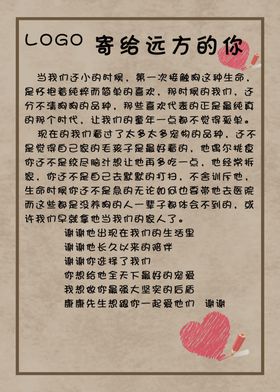 LOGO 寄给远方的你
当我们还小的时候，第一次接触狗这种生命，
是仔抱着纯粹而简单的喜欢，那时候的我们，还
分不清狗狗的品种，那些喜欢代表的正是最纯真
的那个时代，让我们的童年一点都不觉得孤单。
现在的我们看过了太多太多宠物的品种，还不
是觉得自己家的毛孩子是最好看的，他偶尔挑食
你还不是绞尽脑汁想让他再多吃一点，他经常拆
家，你还不是自己去默默的打扫，不舍训斥他，
生命时候你还不是急的无论如何也要带他去医院
而这些都是没养狗的人一辈子都体会不到的，或
许我们早就拿他当我们的家人了。
谢谢他出现在我们的生活里
谢谢他长久以来的陪伴
谢谢你选择了我们
你想给他全天下最好的宠爱
我想做你最强大坚实的后盾
康康先生想跟你一起爱他们 谢谢